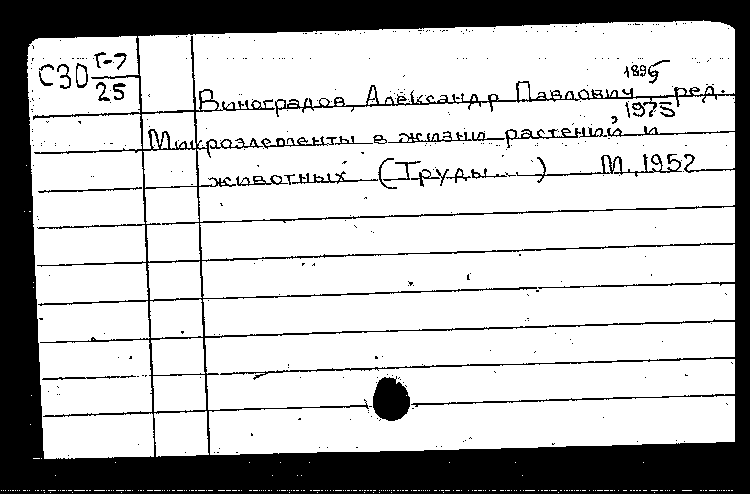 С30 Г-7
25
1895
Виноградов, Александр Павлович, ред.
1975
Микроэлементы в жизни растений и
животных (Труды...) М., 1952